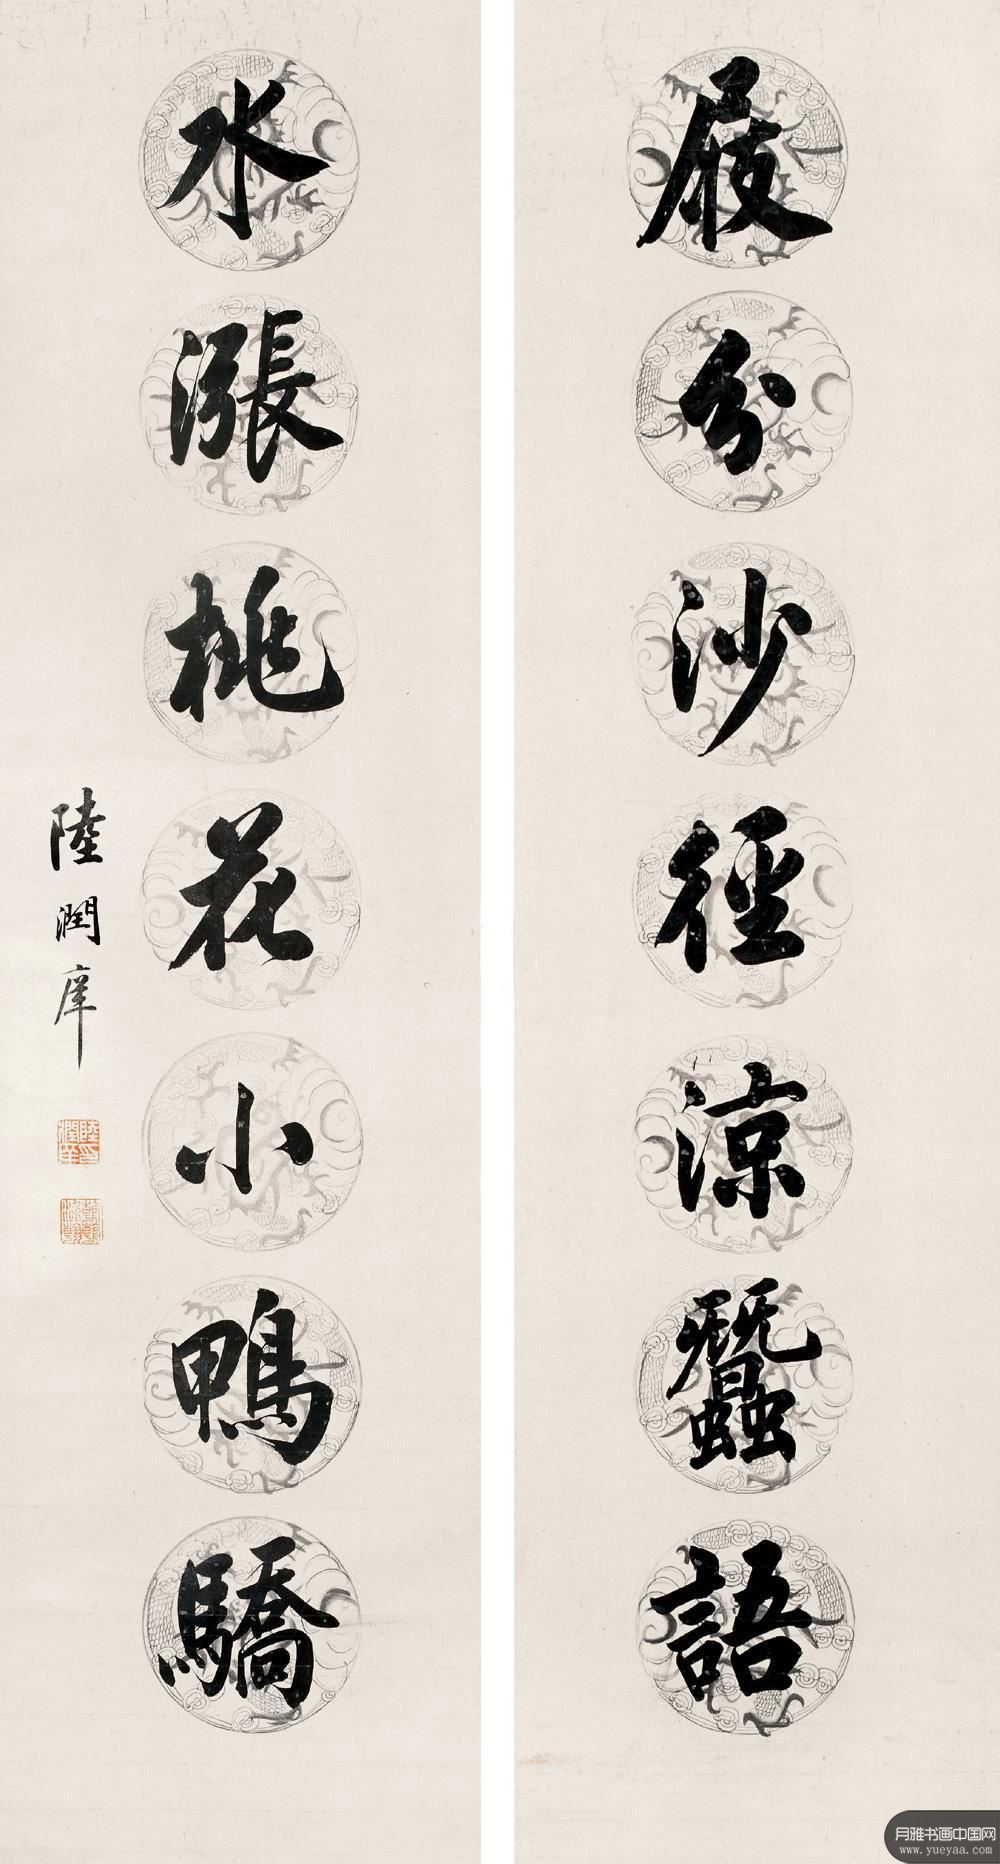 屐分沙徑涼蛩語
水漲桃花小鴨驕
陸潤庠
月雅书画中国网
www.yueyaa.com